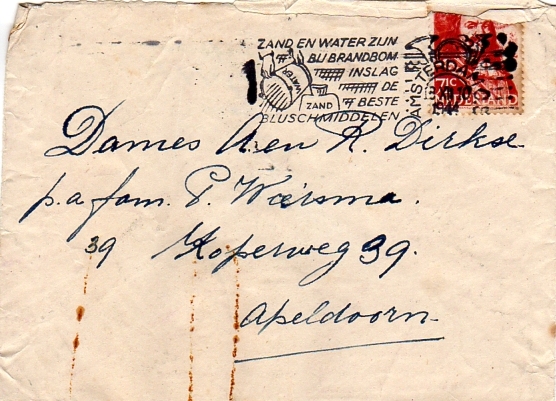 ZAND EN WATER ZIJN
BIJ BRANDBOM
INSLAG
WATER
DE
ZAND
BESTE
BLUSCHMIDDELEN
AMSTERDAM
7½
NEDERLAND
Dames A en R. Dirkse
p.a fam. P. Wiersma.
39 Koperweg 39.
Apeldoorn